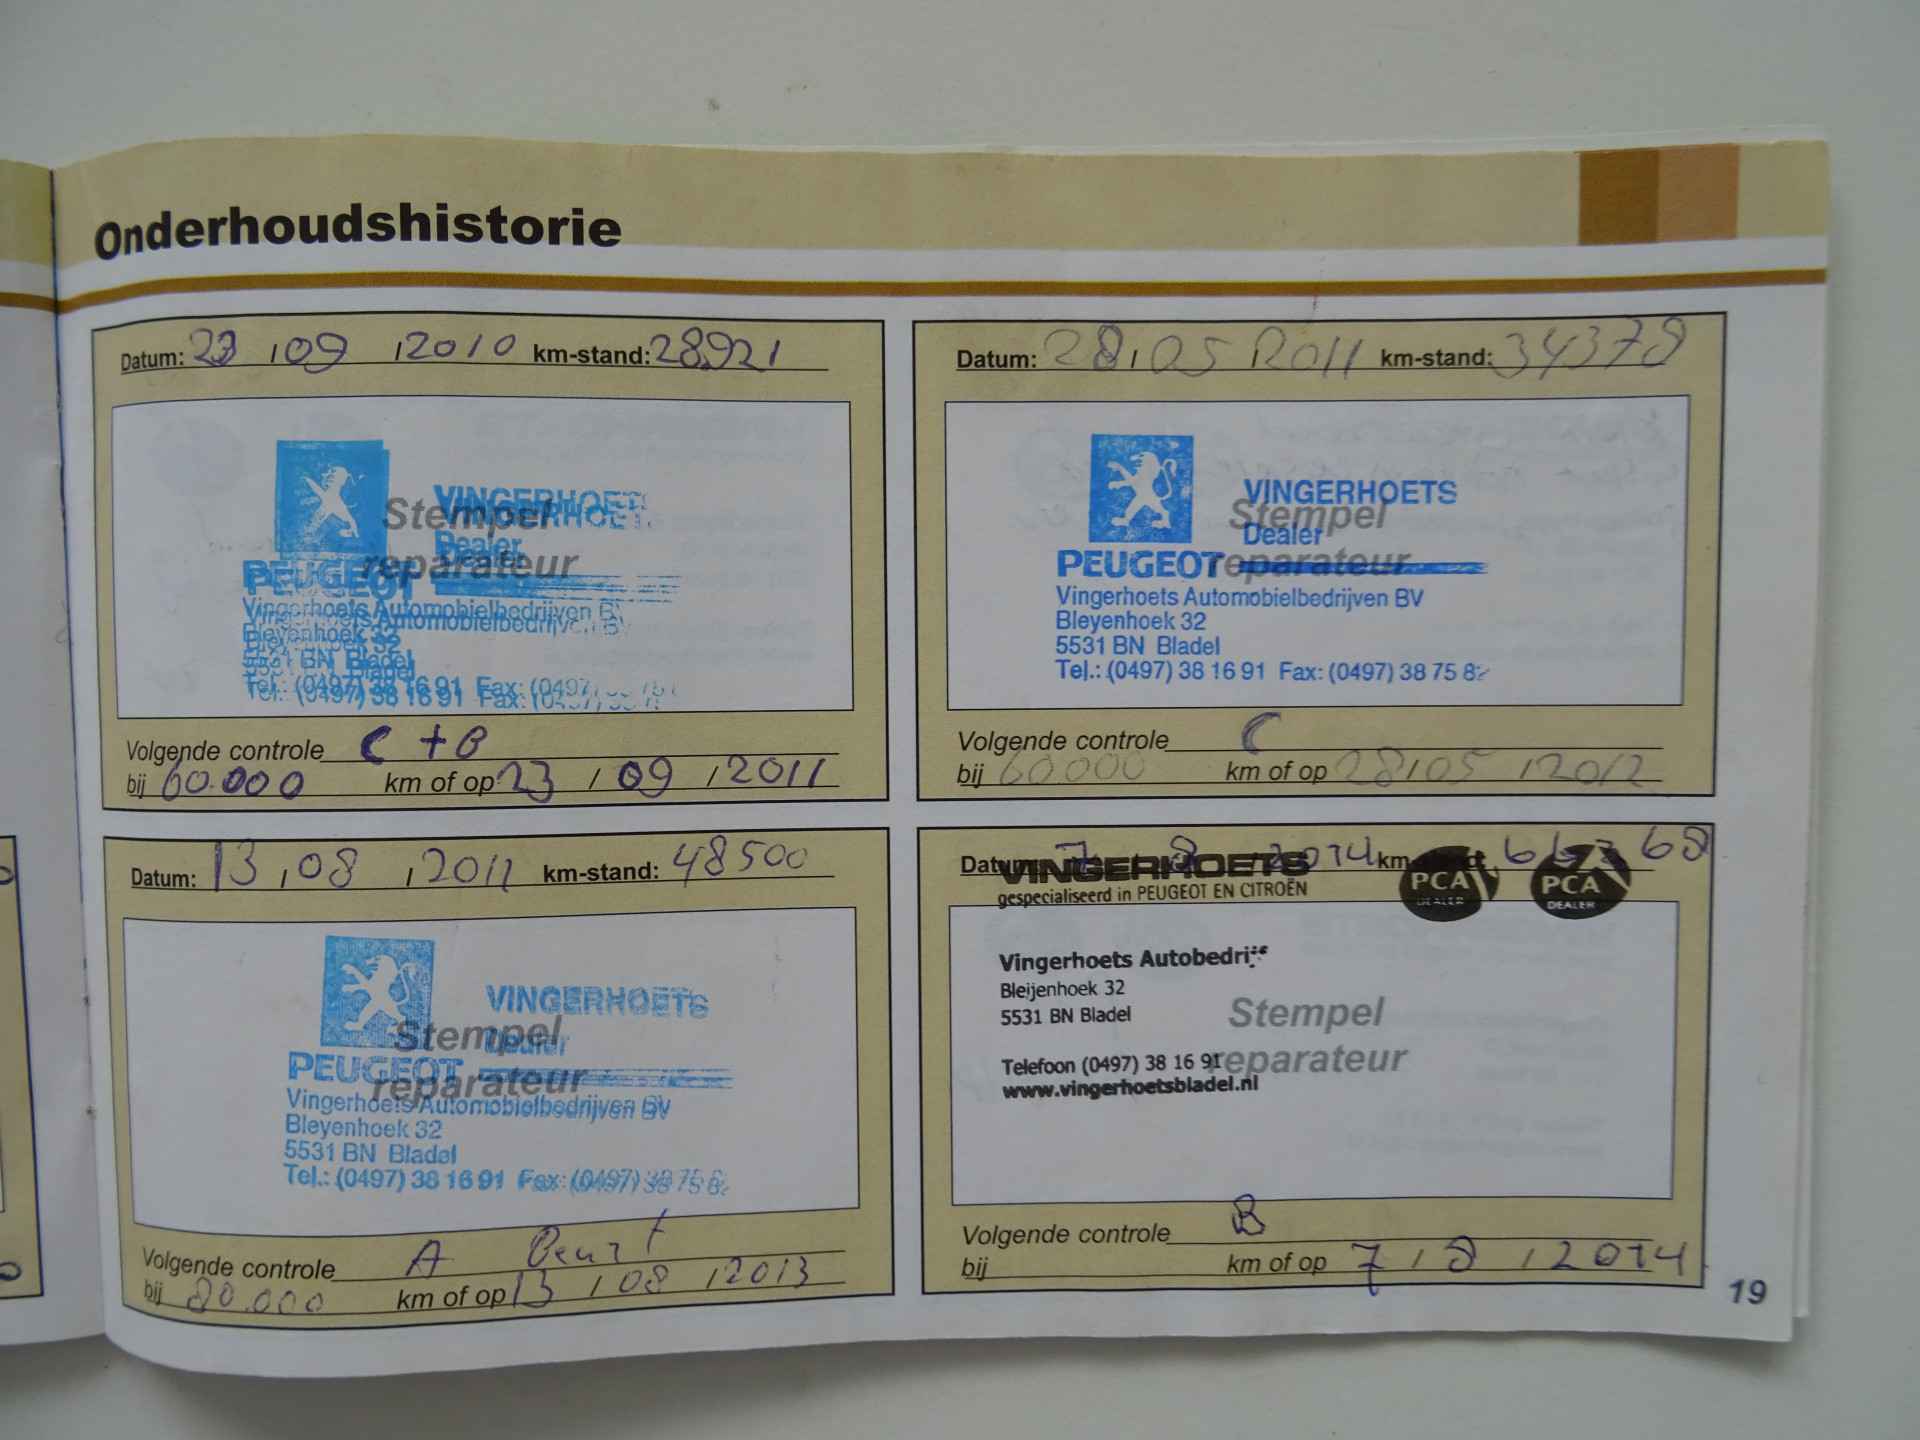 Onderhoudshistorie
Datum: 23 / 09 / 2010 km-stand: 28921
VINGERHOETS
Stempel
Dealer
PEUGEOT reparateur
Vingerhoets Automobielbedrijven BV
Bleyenhoek 32
5531 BN Bladel
Tel.: (0497) 38 16 91 Fax: (0497)
Volgende controle C + B
bij 60.000 km of op 23 / 09 / 2011
Datum: 28 / 05 / 2011 km-stand: 34378
VINGERHOETS
Stempel
Dealer
PEUGEOT reparateur
Vingerhoets Automobielbedrijven BV
Bleyenhoek 32
5531 BN Bladel
Tel.: (0497) 38 16 91 Fax: (0497) 38 75 82
Volgende controle C
bij 60.000 km of op 28 / 05 / 2012
Datum: 13 / 08 / km-stand: 48500
VINGERHOETS
Stempel
Dealer
PEUGEOT
reparateur
Vingerhoets Automobielbedrijven BV
Bleyenhoek 32
5531 BN Bladel
Tel.: (0497) 38 16 91 Fax: (0497) 38 75 82
Volgende controle A Beurt
bij 80.000 km of op 13 / 08 / 2013
Datum: 7 8 2014 km-stand:
VINGERHOETS
gespecialiseerd in PEUGEOT EN CITROËN
PCA DEALER PCA DEALER
Vingerhoets Autobedrijf
Bleijenhoek 32
5531 BN Bladel
Stempel
Telefoon (0497) 38 16 91 reparateur
www.vingerhoetsbladel.nl
Volgende controle B
bij km of op 7 / 8 / 2014
19